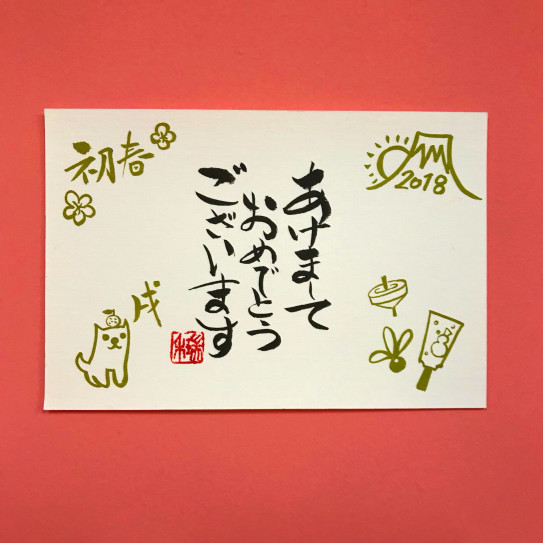 あけまして
おめでとう
ございます
初春
2018
戌